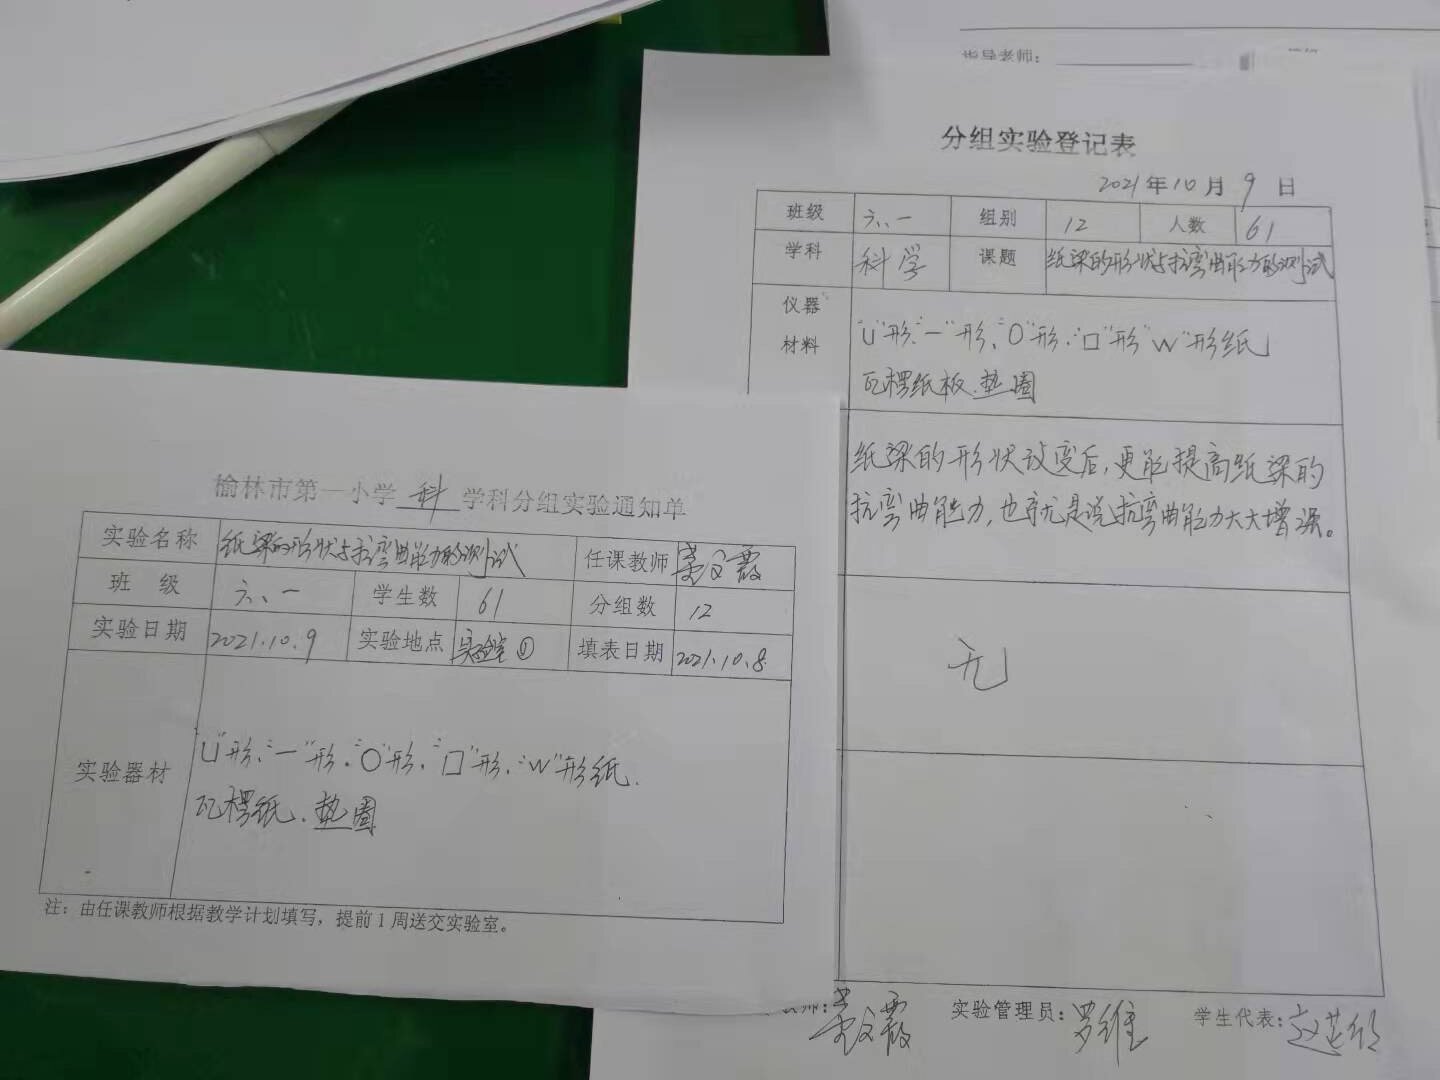 指导老师：
分组实验登记表
2021年10月9日
班级 六、一 组别 12 人数 61
学科 科学 课题 纸梁的形状与抗弯曲能力的测试
仪器
材料
"U"形、"一"形、"O"形、"口"形"W"形纸
瓦楞纸板、垫圈
纸梁的形状改变后，更能提高纸梁的
抗弯曲能力，也就是说抗弯曲能力大大增强。
无
师： 文霞 实验管理员：罗维 学生代表：
榆林市第一小学 科 学科分组实验通知单
实验名称 纸梁的形状与抗弯曲能力的测试 任课教师 文霞
班 级 六、一 学生数 61 分组数 12
实验日期 2021.10.9 实验地点 实验室① 填表日期 2021.10.8
实验器材
"U"形、"一"形、"O"形、"口"形、"W"形纸.
瓦楞纸、垫圈
注：由任课教师根据教学计划填写，提前1周送交实验室。